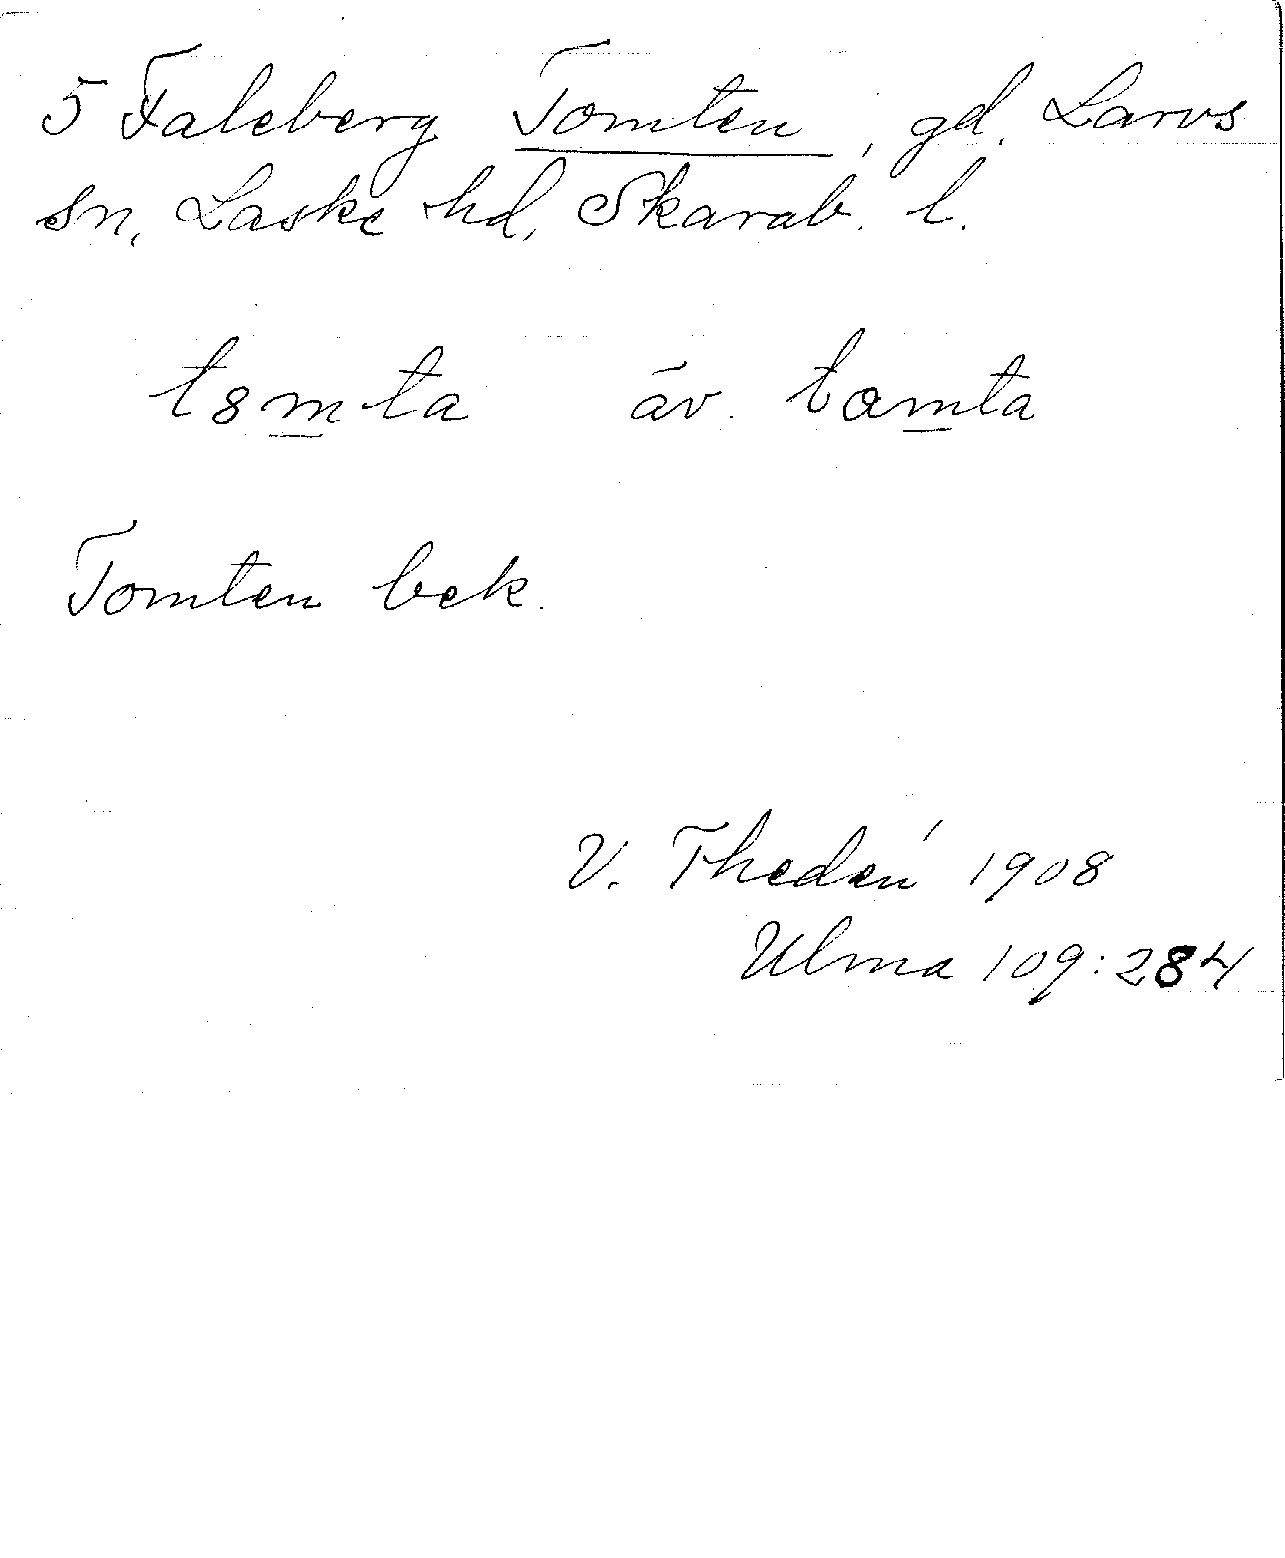 5 Faleberg Tomten, gd. Larvs
sn, Laske hd, Skarab. l.
t8mta äv. tamta
Tomten bek.
V. Thedén 1908
Ulma 109:284